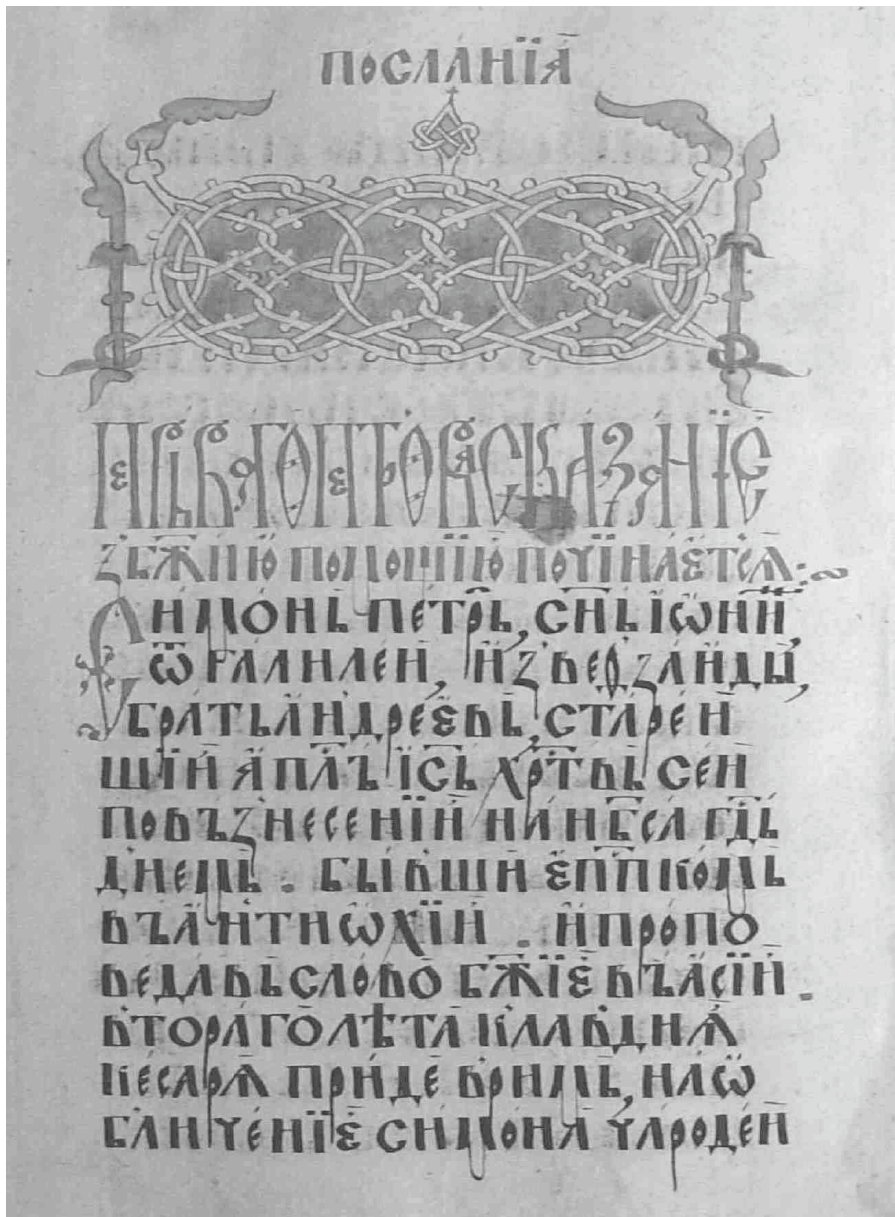 посла́нїѧ̀
первагѡ петрова сказанїе
з бж҃їю помощїю почїнае́тсѧ:~
Си́мѡнъ пе́тръ, сн҃ъ іѡ́ни́н,
ѿ галиле́и, и҆з веѳзаи́ды,
бра́тъ андре́евъ, старе́и
шїи а҆пл҃ъ і҆с҃ъ хр҃то́въ се́и
по въз̾несе́нїи на нб҃са гд҃ь
днемъ. бы́вши е҆п҃пкомъ
въ а҆нтиѡхі́и. и҆ пропо
ве́давъ сло́во бж҃їе въ а҆сі́и.
вторагѡ лѣ́та кла́вдиѧ
ке́сарѧ прі́иде в̾ римъ, на ѡ
бличе́нїе си́мона чароде́и